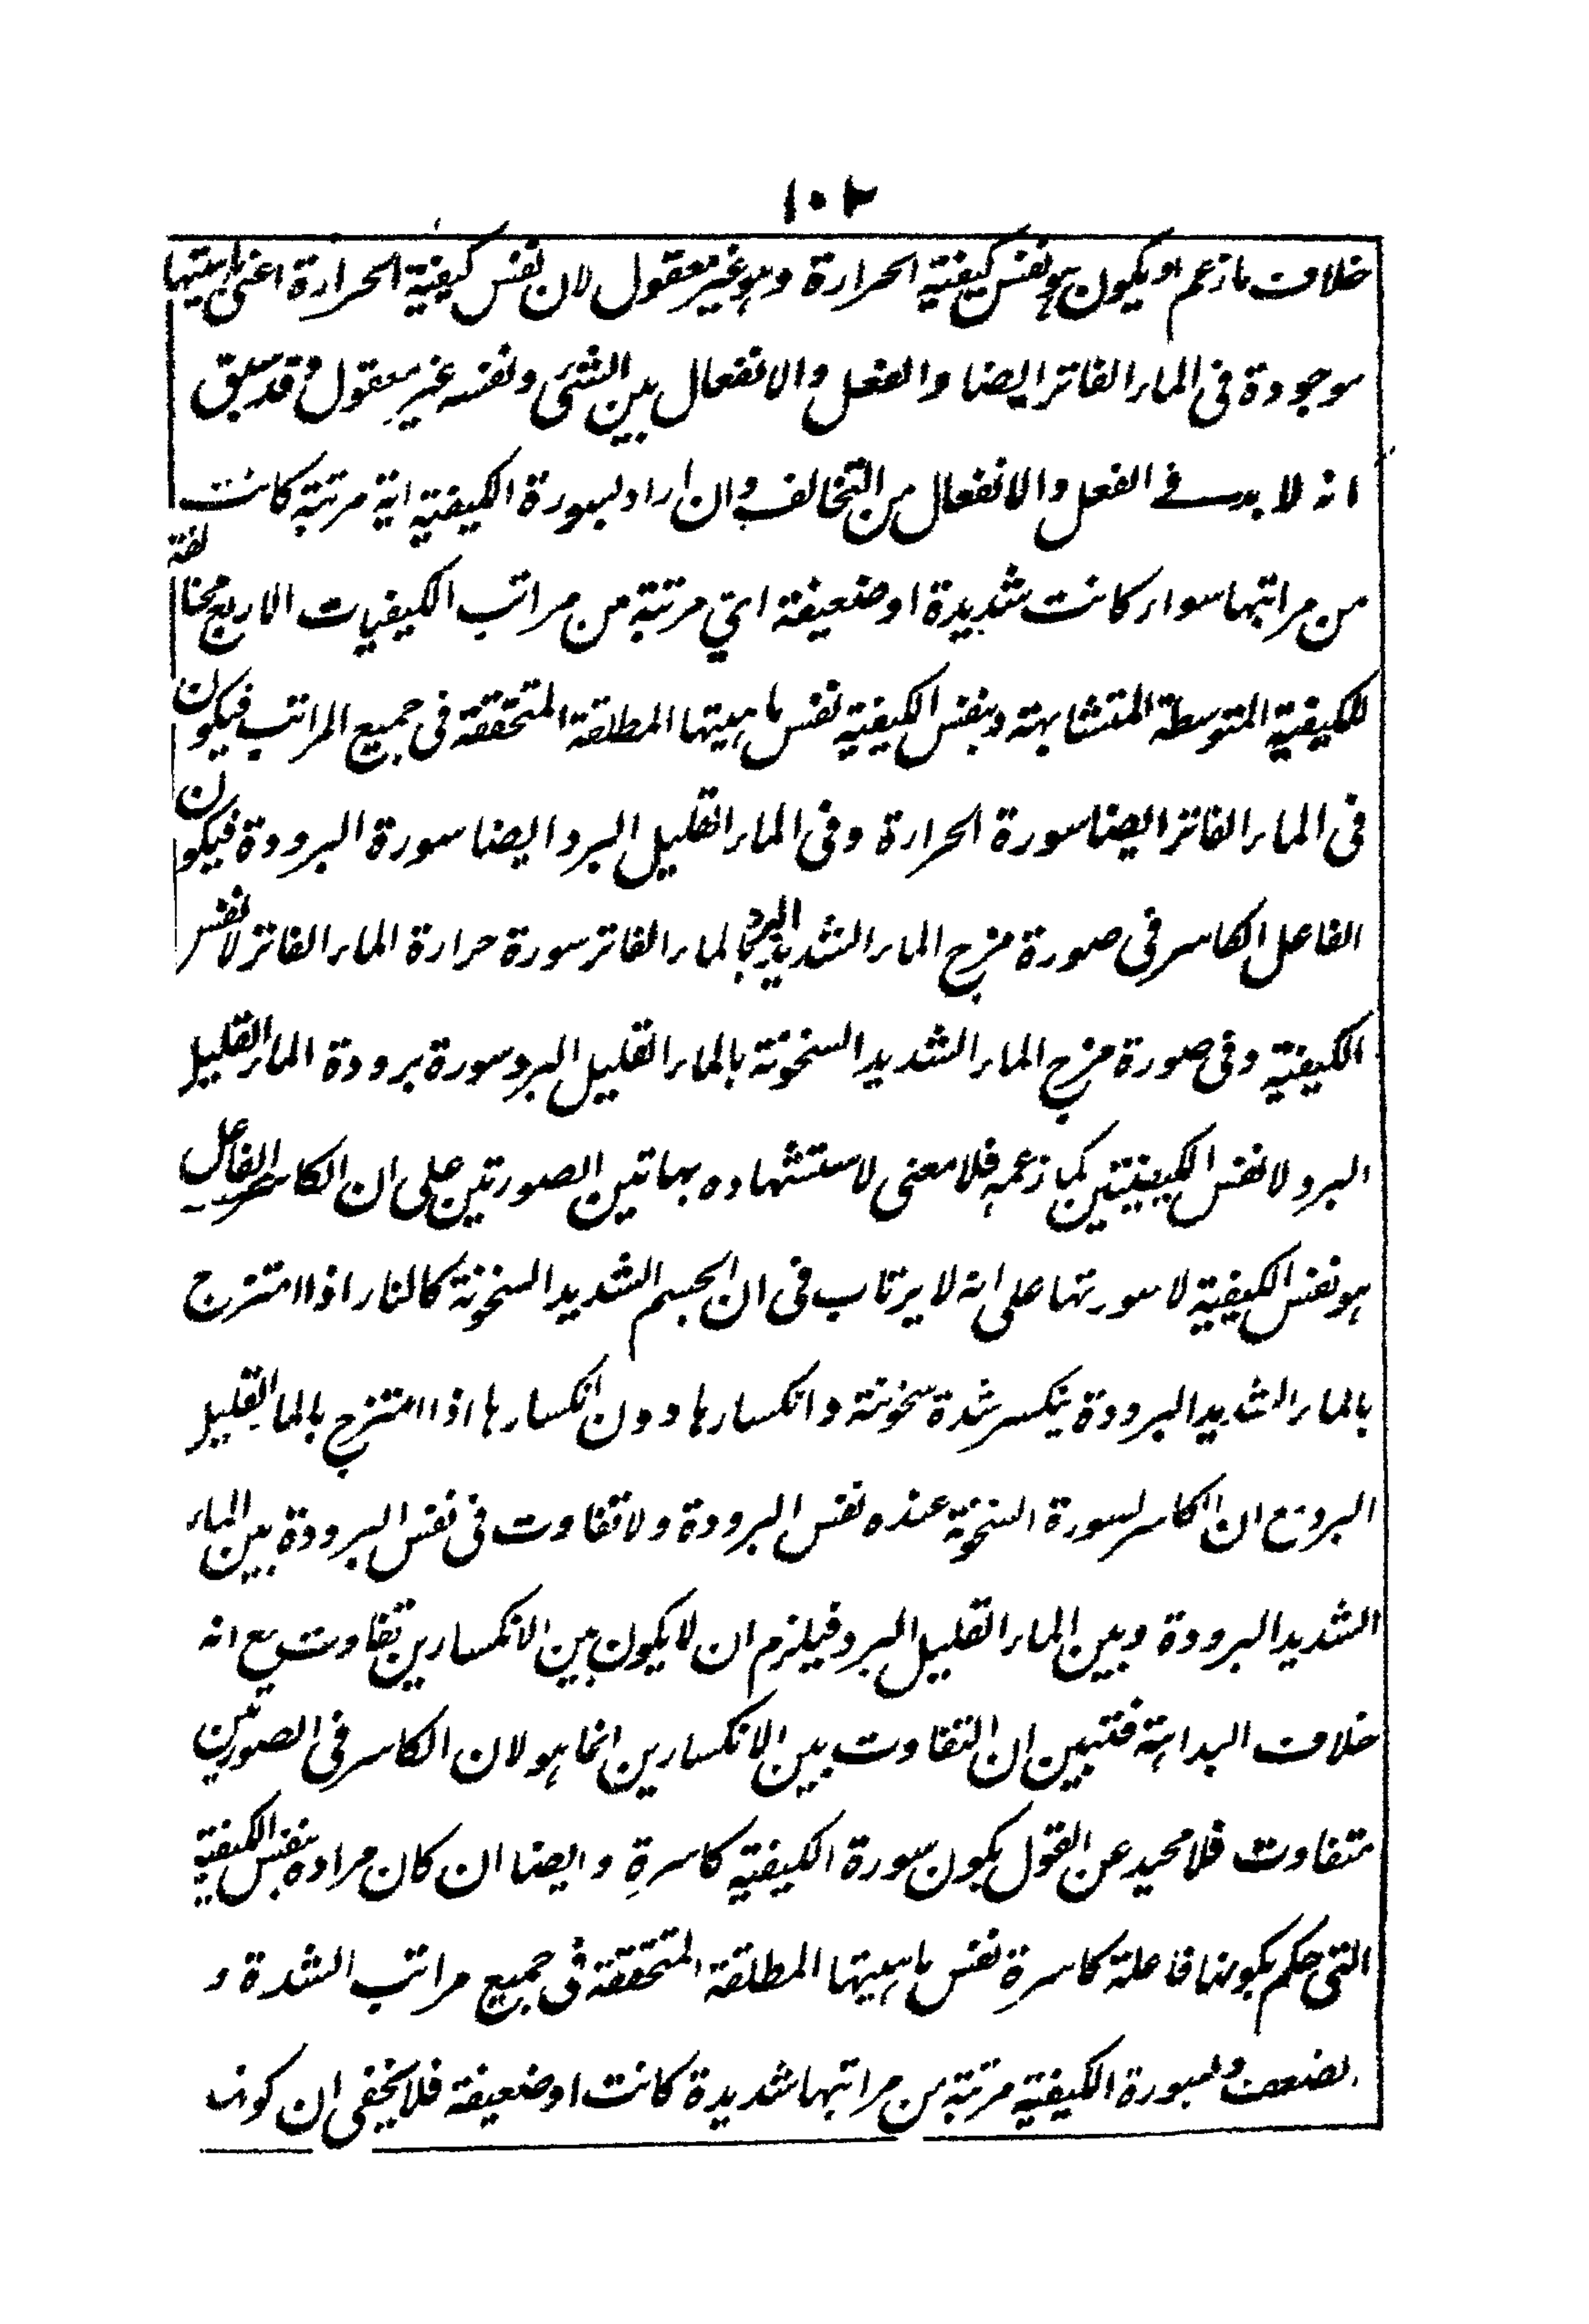 ١٠٢
خلاف ما زعم او يكون هو نفس كيفية الحرارة وهو غير معقول لان نفس كيفية الحرارة اعنى ماهيتها
موجودة فى الماء الفاتر ايضا والفعل والانفعال بين الشئ ونفسه غير معقول وقد سبق
انه لا بد فى الفعل والانفعال من التخالف وان اراد بسورة الكيفية اية مرتبة كانت
من مراتبها سواء كانت شديدة او ضعيفة اى مرتبة من مراتب الكيفيات الاربع مخالفة
للكيفية المتوسطة المتشابهة وبنفس الكيفية نفس ماهيتها المطلقة المتحققة فى جميع المراتب فيكون
فى الماء الفاتر ايضا سورة الحرارة وفى الماء القليل البرد ايضا سورة البرودة فيكون
الفاعل الكاسر فى صورة مزج الماء الشديد البرد بالماء الفاتر سورة حرارة الماء الفاتر لا نفس
الكيفية وفى صورة مزج الماء الشديد السخونة بالماء القليل البرد سورة برودة الماء القليل
البرد لا نفس الكيفيتين كما زعمه فلا معنى لاستشهاده بهاتين الصورتين على ان الكاسر الفاعل
هو نفس الكيفية لا سورتها على انه لا يرتاب فى ان الجسم الشديد السخونة كالنار اذا امتزج
بالماء الشديد البرودة ينكسر شدة سخونته وانكسارها دون انكسارها اذا امتزج بالماء القليل
البرد مع ان الكاسر لسورة السخونة عنده نفس البرودة ولا تفاوت فى نفس البرودة بين الماء
الشديد البرودة وبين الماء القليل البرد فيلزم ان لا يكون بين الانكسارين تفاوت مع انه
خلاف البداهة فتبين ان التفاوت بين الانكسارين انما هو لان الكاسر فى الصورتين
متفاوت فلا محيد عن القول بكون سورة الكيفية كاسرة وايضا ان كان مراده بنفس الكيفية
التى حكم بكونها فاعلة كاسرة نفس ماهيتها المطلقة المتحققة فى جميع مراتب الشدة و
الضعف وبسورة الكيفية مرتبة من مراتبها شديدة كانت او ضعيفة فلا يخفى ان كونها